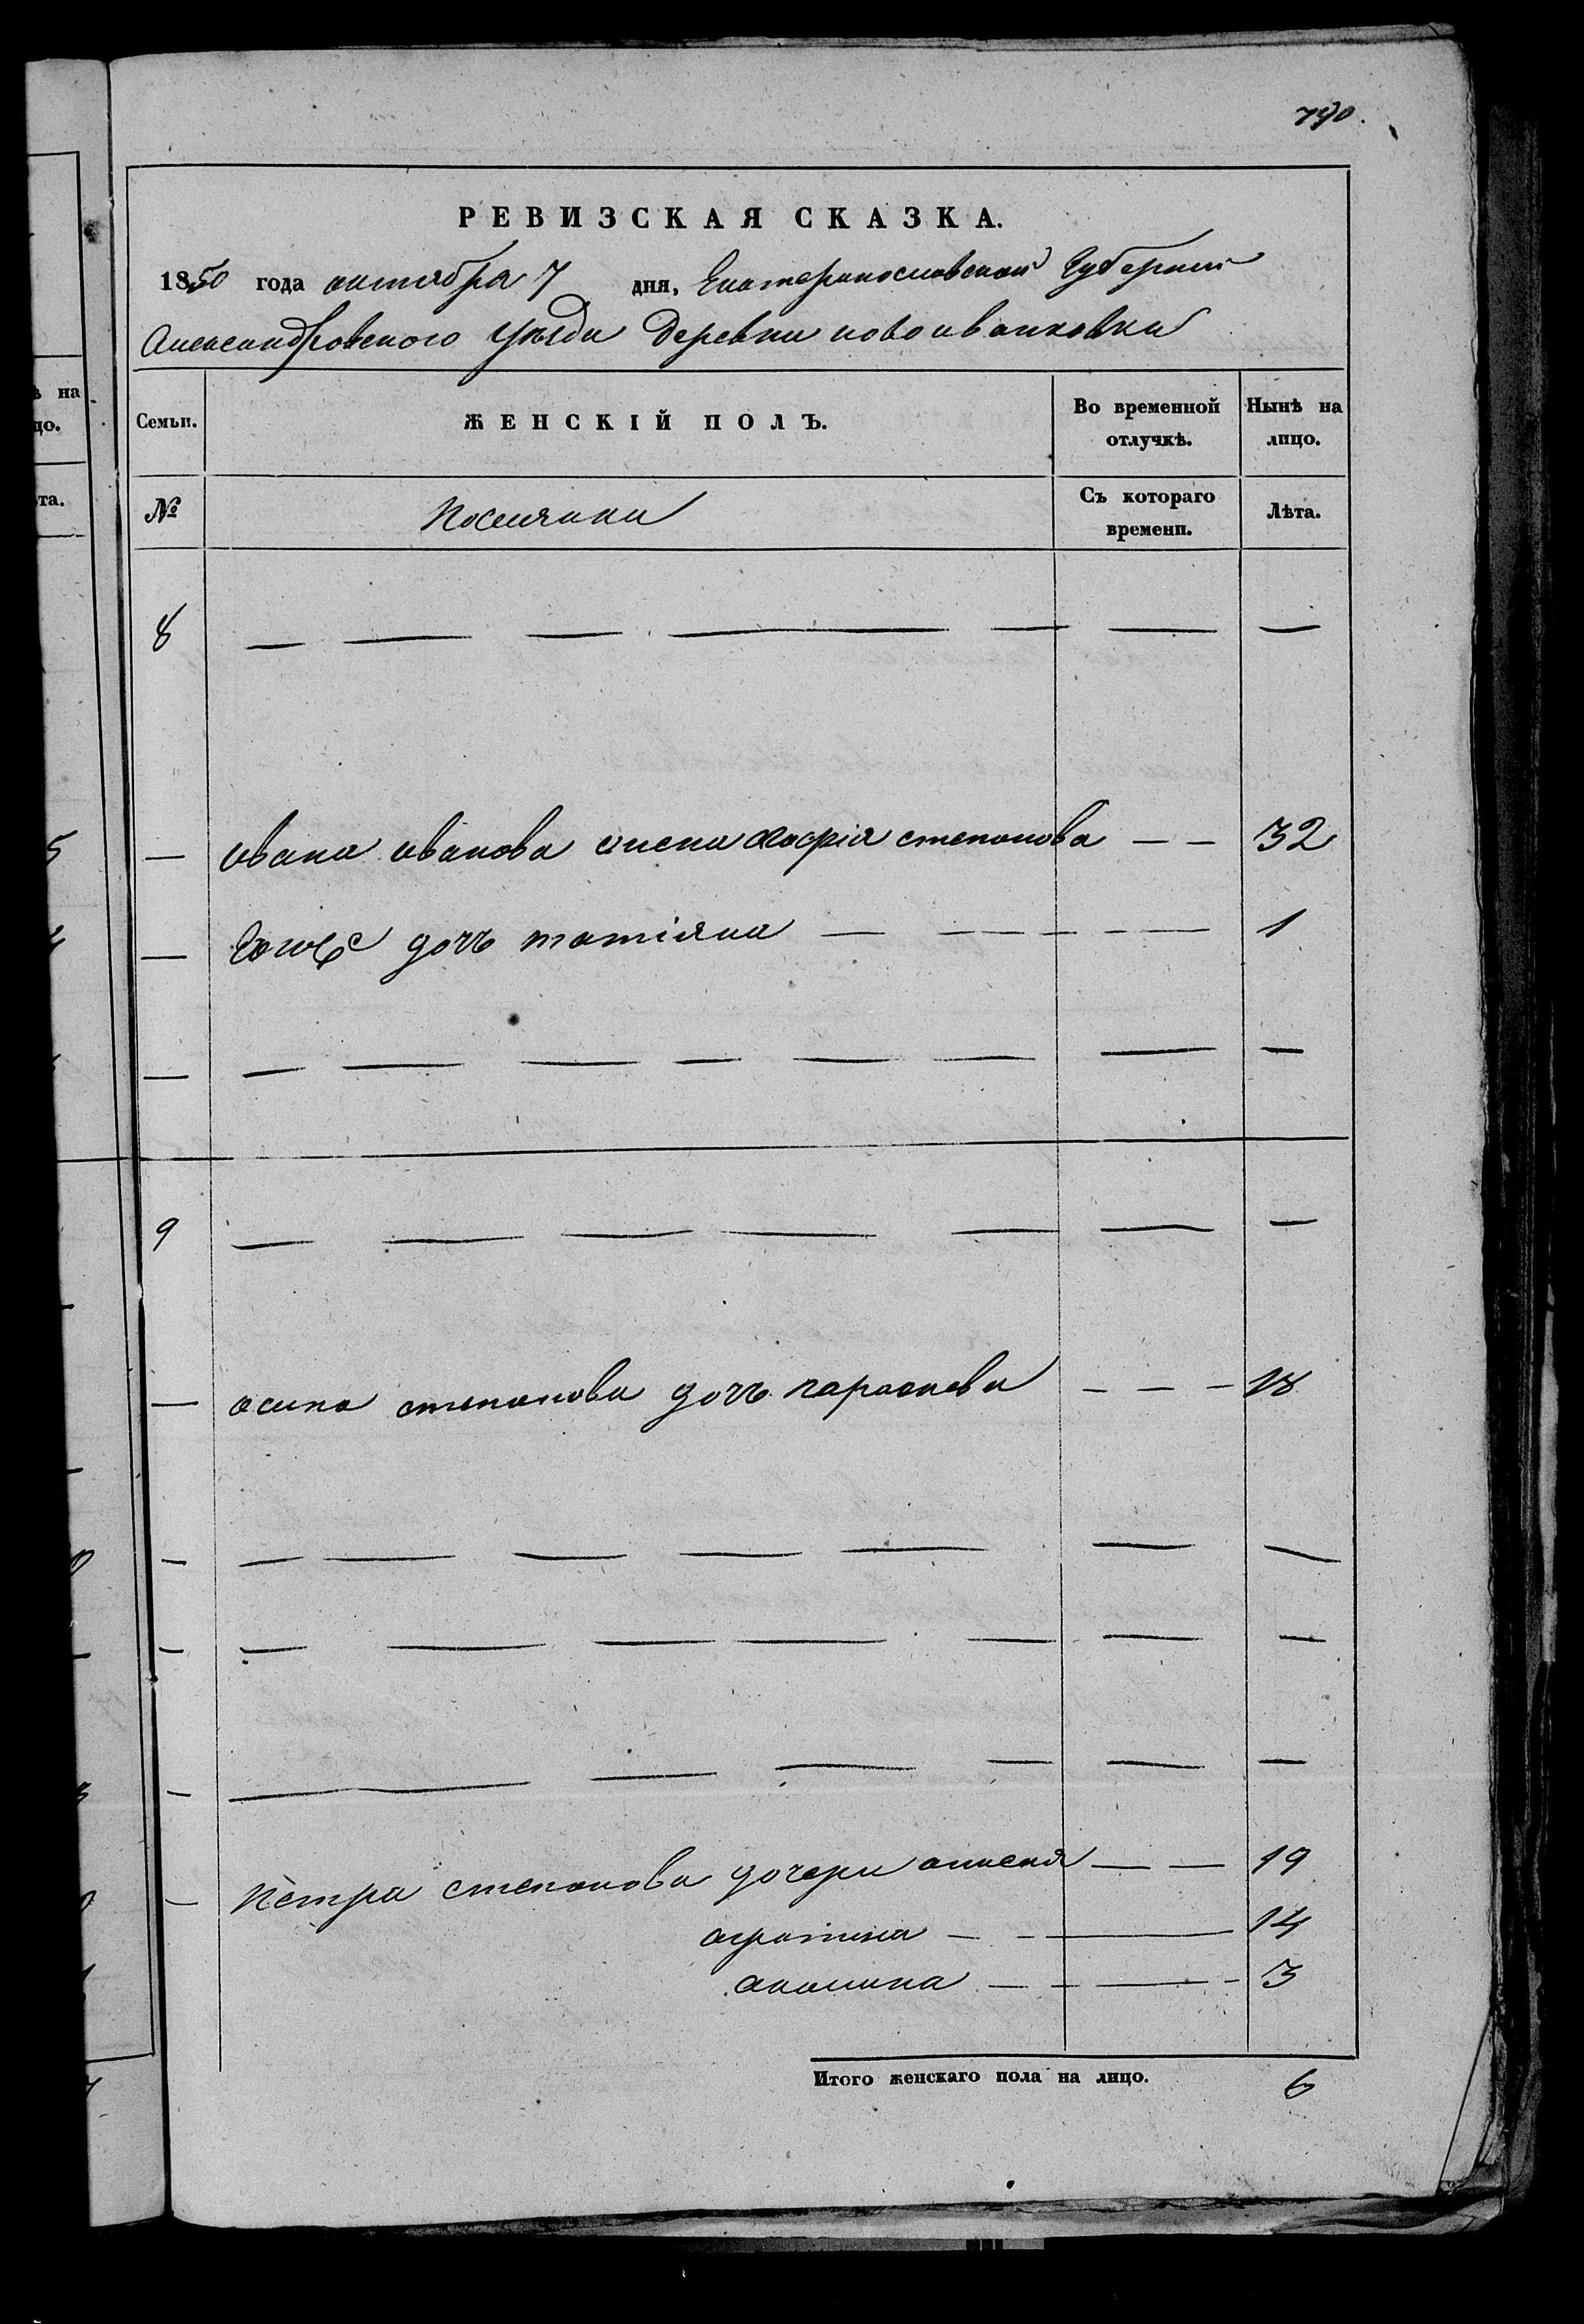 790.
РЕВИЗСКАЯ СКАЗКА.
1850 года октября 7 дня, Екатеринославской Губернии
Александровского Уезда деревни новоивановки
Семьи. ЖЕНСКІЙ ПОЛЪ. Во временной отлучкѣ. Нынѣ на лицо.
№ Поселянки Съ котораго времени. Лѣта.
8 — — — — — — —
— ивана иванова жена софія степанова — — 32
— дочъ татіяна — — — — — 1
— — — — — — — — —
9 — — — — — — —
— осипа степанова дочъ парасковия — — — 18
— — — — — — — —
— — — — — — — —
— — — — — — —
— Петра степанова дочери аписия — — 19
агрипина — — 14
акилина — — — 3
Итого женскаго пола на лицо. 6